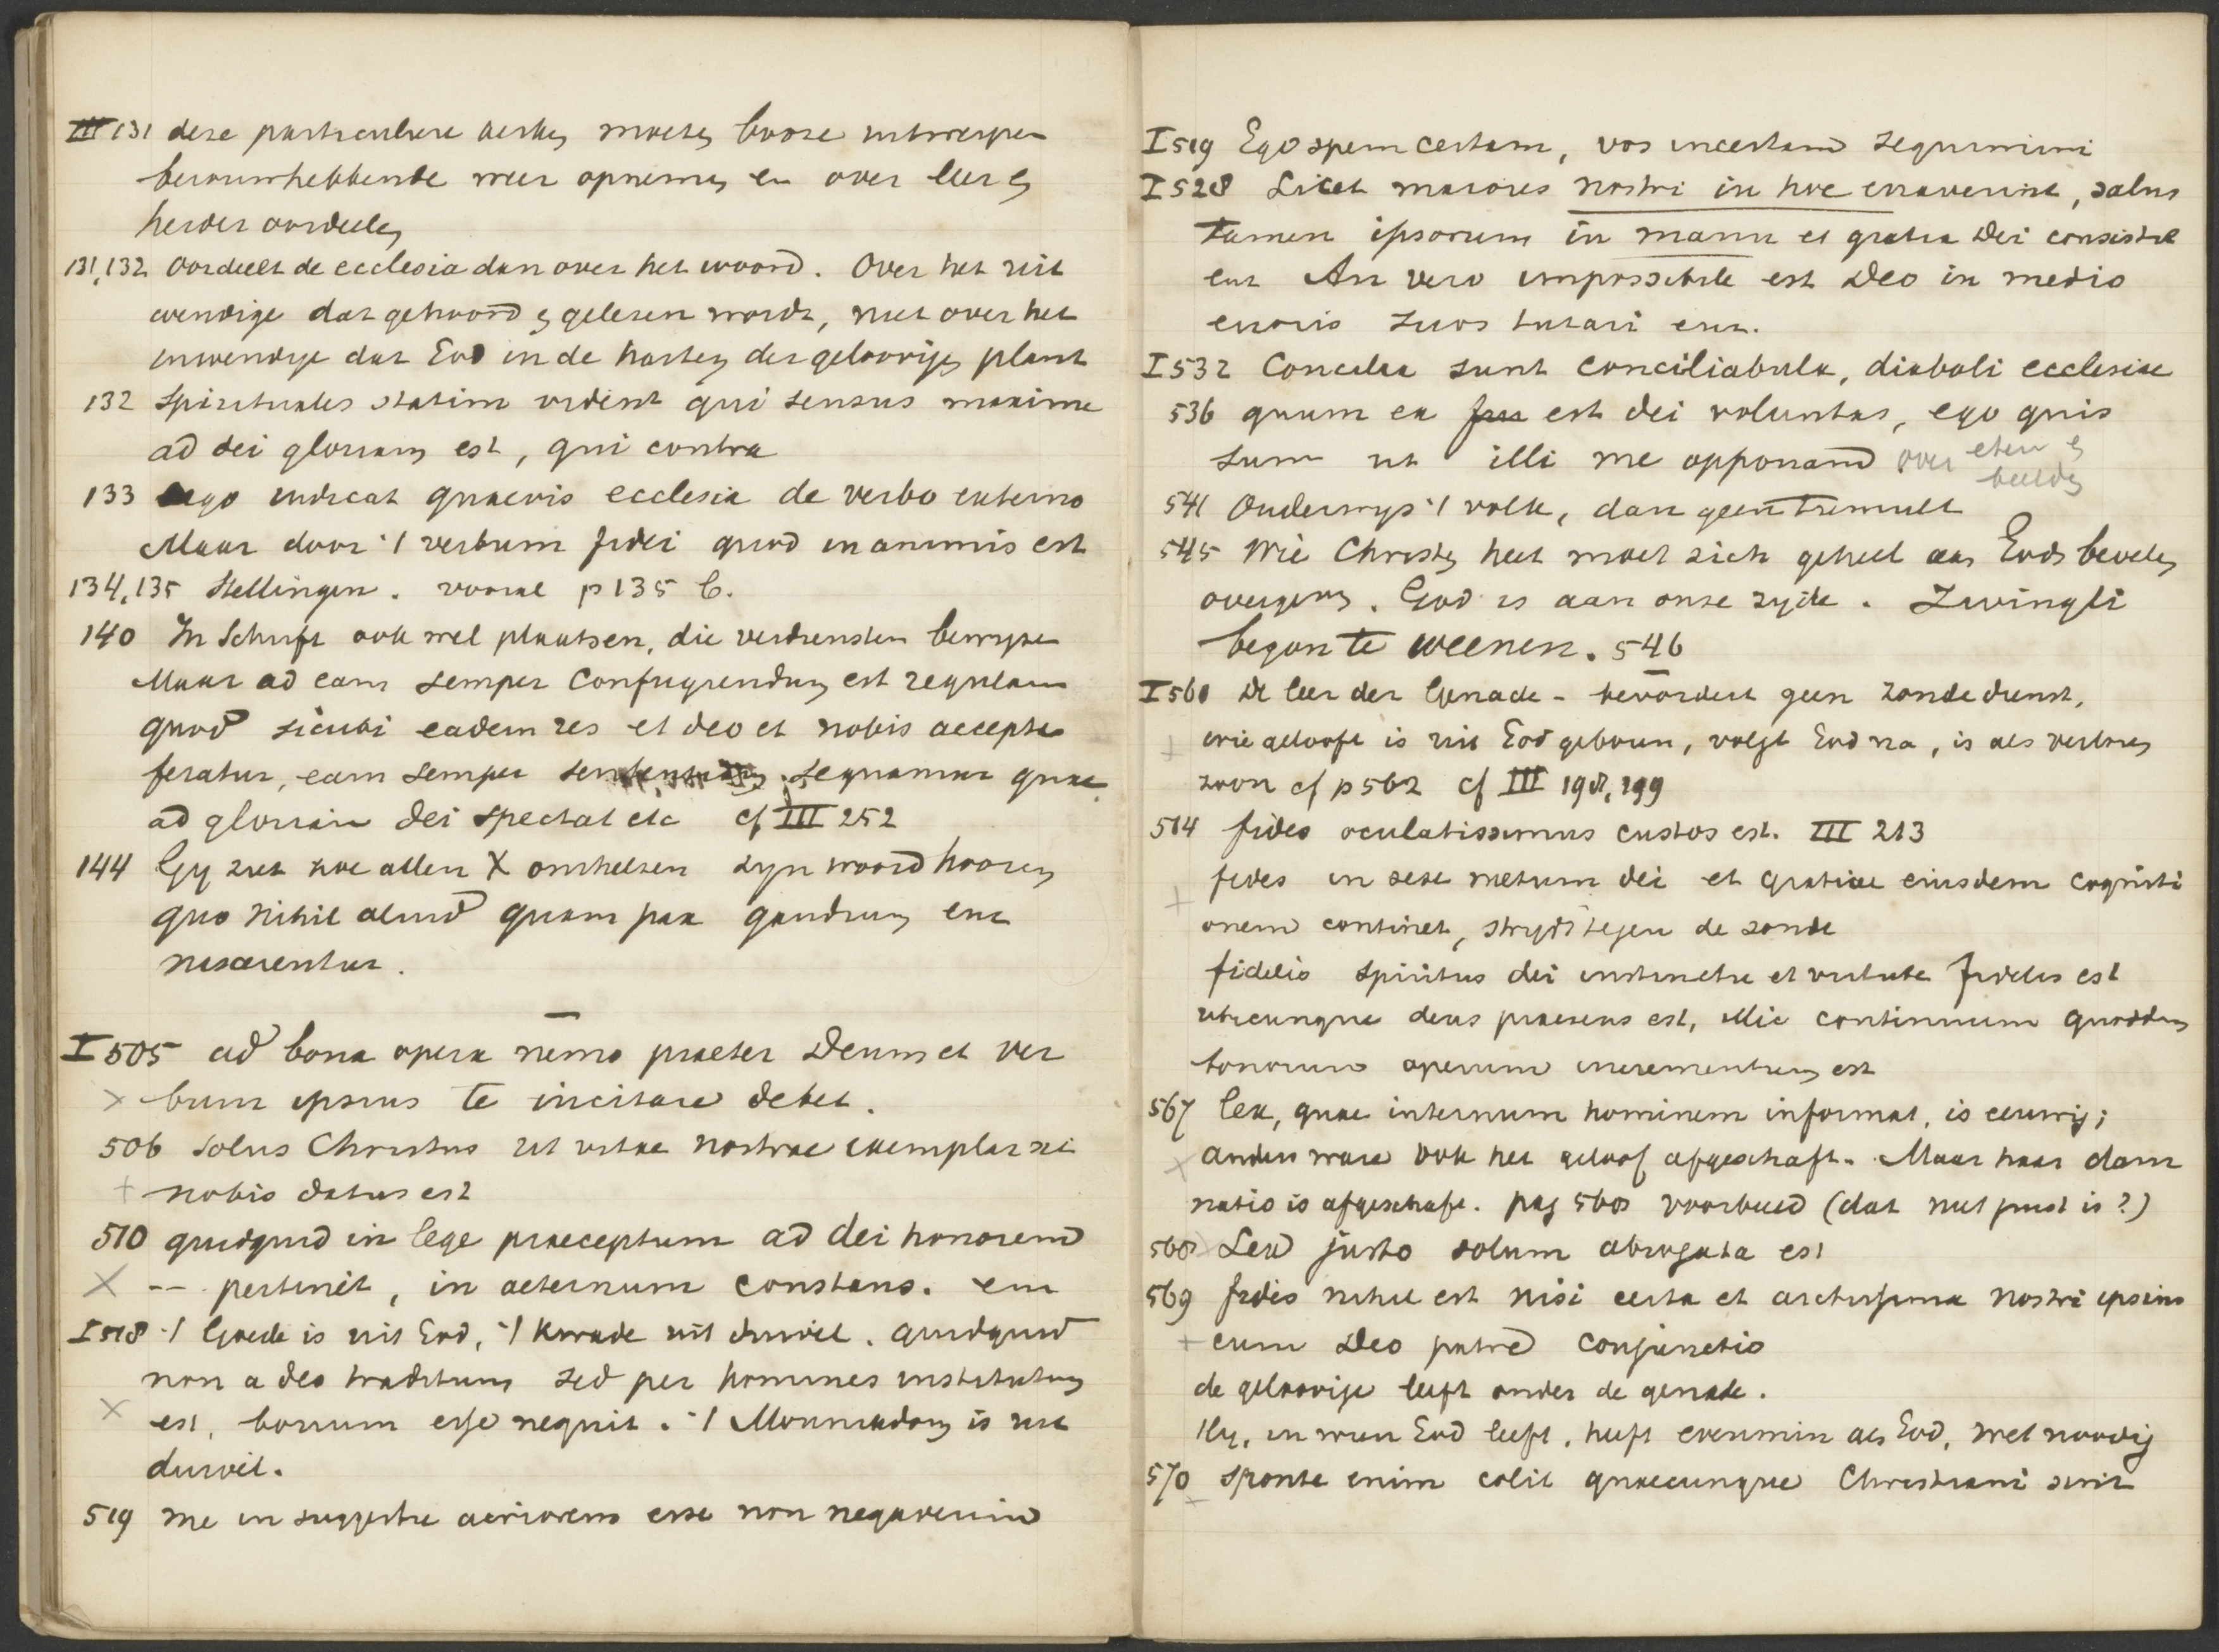 III 131 deze particuliere kerken moeten booze uitwerpen
berouwhebbende weer opnemen en over leer en
herder oordeelen
131,132 Oordeelt de ecclesia dan over het woord. Over het uit
wendige dat gehoord en gelezen wordt, niet over het
inwendige dat God in de harten der geloovigen plant
132 Spirituales statim vident qui sensus maxime
ad dei gloriam est, qui contra
133 ergo iudicat quaevis ecclesia de verbo externo
Maar door 't verbum fidei quod in animis est
134,135 Stellingen. vooral p 135 b.
140 In Schrift ook wel plaatsen, die verdiensten bewijzen
Maar ad eam semper confugiendum est regulam
quod sicubi eadem res et deo et nobis accepta
feratur, eam semper sententiam sequamur quae
ad gloriam dei spectat etc cf III 252
144 Gy ziet hoe allen X omhelzen zyn woord hooren
quo nihil aliud quam pax gaudium enz
nascerentur.
I 505 ad bona opera nemo praeter Deum et ver
x bum ipsius te incitare debet.
506 Solus Christus ut vitae nostrae exemplar sit
+ nobis datus est
510 quidquid in lege praeceptum ad dei honorem
X -- pertinet, in aeternum constans. enz
I 518 't Goede is uit God, 't kwade uit duivel. quidquid
non a deo traditum sed per homines institutum
x est, bonum esse nequit. 't Monnikdom is uit
duivel.
519 me in suggestu acriorem esse non negaverim
I 519 Ego spem certam, vos incertam sequimini
I 528 Licet maiores nostri in hoc erraverint, salus
tamen ipsorum in manu et gratia Dei consistit
enz An vero impossibile est Deo in medio
erroris suos tutari enz.
I 532 Concilia sunt conciliabula, diaboli ecclesiae
536 quum ea fuit est dei voluntas, ego quis
sum ut illi me opponam over eten en
beelden
541 Onderwys 't volk, dan geen tumult
545 Wie Christen heet moet zich geheel aan Gods bevelen
overgeven. God is aan onze zyde. Zwingli
begon te weenen. 546
I 560 De leer der Genade - bevordert geen zondedienst,
+ wie gelooft is uit God geboren, volgt God na, is als verloren
zoon cf p 562 cf III 198, 199
564 fides oculatissimus custos est. III 213
fides in sese metum dei et gratiae eiusdem cogniti
+ onem continet, strydt tegen de zonde
fidelis spiritus dei instinctu et virtute fidelis est
ubicunque deus praesens est, illic continuum quoddam
bonorum operum incrementum est
567 lex, quae internum hominem informat, is eeuwig;
x anders ware ook het geloof afgeschaft. Maar haar dam
natio is afgeschaft. pag 568 voorbeeld (dat niet juist is?)
568 Lex justo solum abrogata est
569 fides nihil est nisi certa et arctissima nostri ipsius
+ cum Deo patre conjunctio
de geloovige leeft onder de genade.
Hy, in wien God leeft, heeft evenmin als God, wet noodig
570 sponte enim colit quaecunque Christiani sunt
+